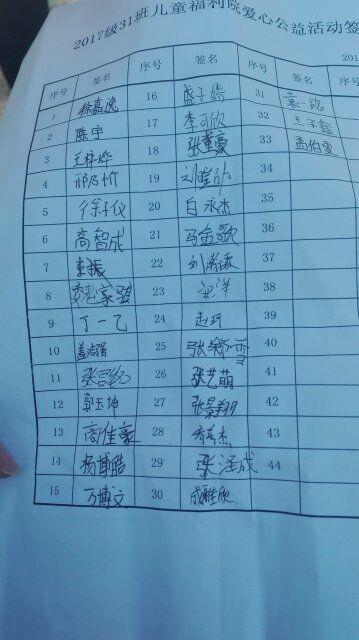 2017级31班儿童福利院爱心公益活动签
序号 签名 序号 签名 序号 签名
1 徐嘉逸 16 盛子嫣 31 袁一铭
2 陈宇 17 李可欣 32 王子鑫
3 王梓烨 18 张熏豪 33 孟伯雯
4 祁乃竹 19 34
5 徐子仪 20 白永杰 35
6 高智成 21 马金歌 36
7 李振 22 刘瀚霖 37
8 23 洋 38
9 丁一乙 24 赵轩 39
10 盖浩强 25 张矫雪 40
11 26 张艺萌 41
12 郭玉坤 27 张景翔 42
13 高佳豪 28 杰 43
14 杨博皓 29 张泽成 44
15 万博文 30 成雅欣